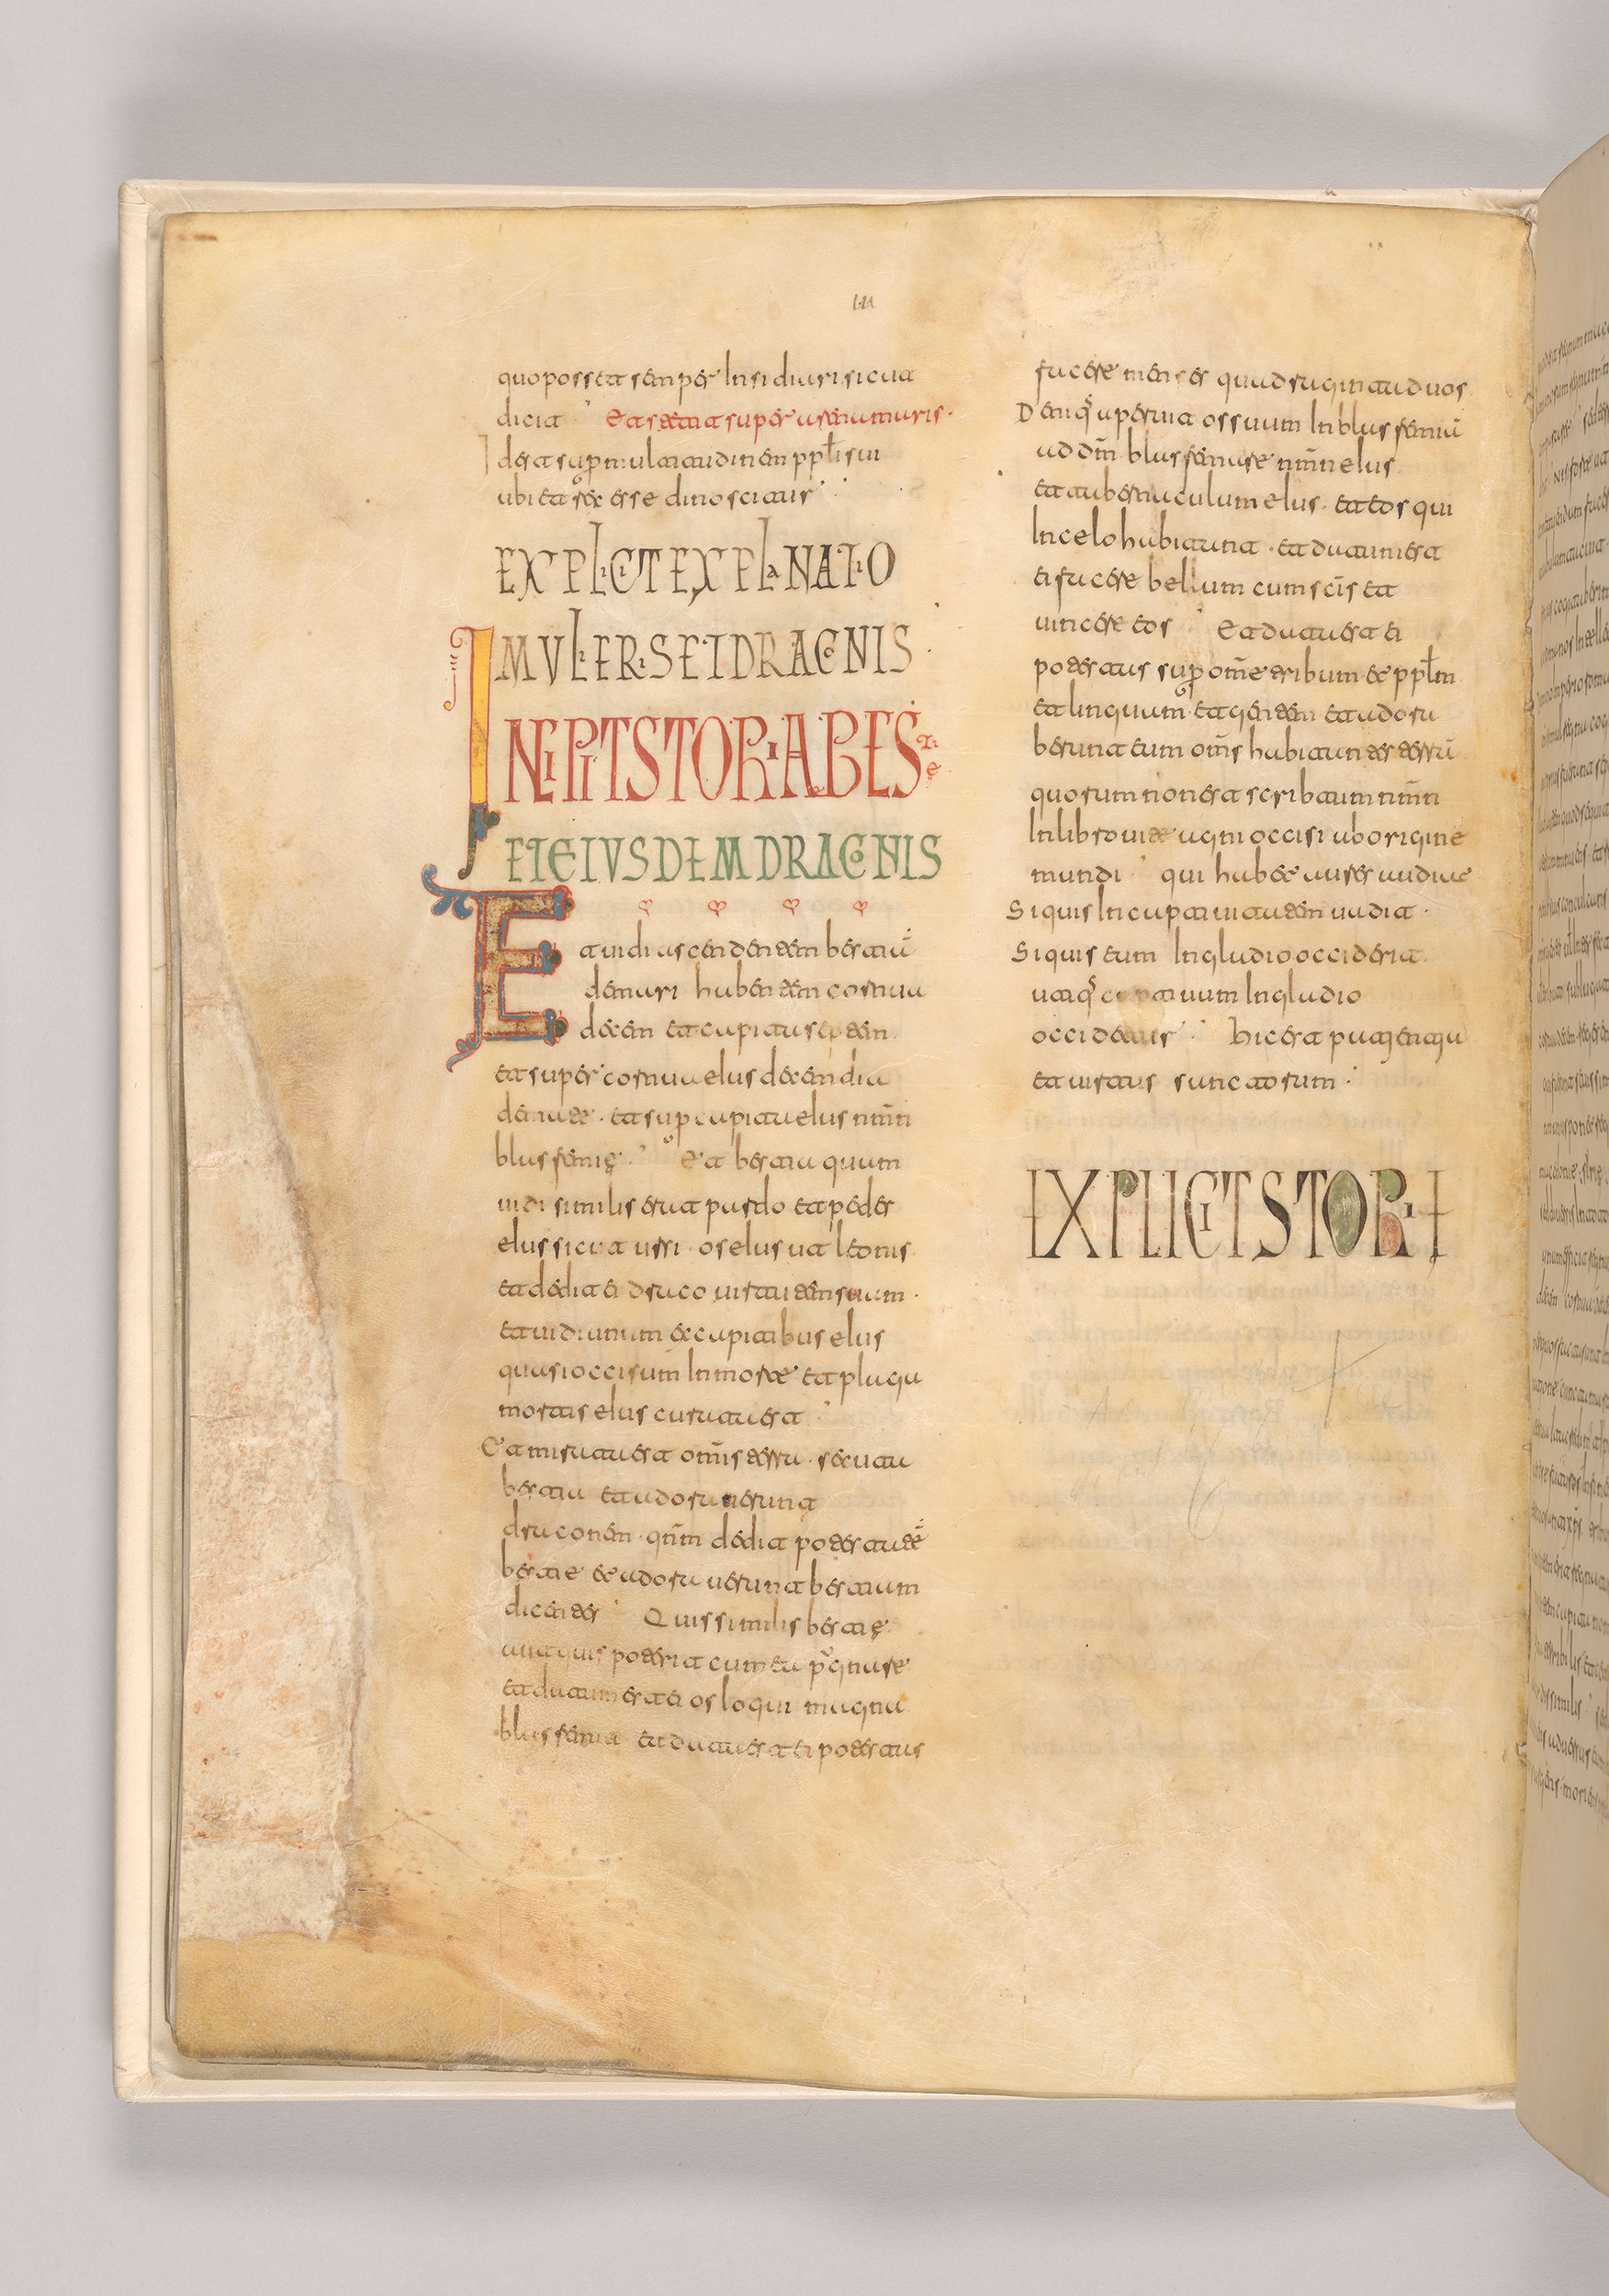 ııı
quo posset semper Insidiari sicut
dicit Et stetit super arenam maris.
Id est supr multitudinem pplī sui
ubi et sex esse dinoscitur
EXPLICIT EXPLaNATIO
MULIERIS ET DRACONIS
INCIPIT STORIA BESTIE
ET EIUSDEM DRACONIS
Et vidi ascendentem bestiā
de mari habentem cornua
decem et capita septem
et super cornua eius decem dia
demate. et supr capita eius nm̄n
blasfemię. Et bestia quam
vidi similis erat pardo et pedes
eius sicut ursi. os eius ut leonis
et dedit ei draco virtutem suam.
et vidi unum ex capitibus eius
quasi occisum In morte et plaga
mortis eius curata est
Et mirata est omīs terra. secuta
bestia et adoraverunt
draconem. qnm̄ dedit potestatē
bestie et adoraverunt bestium
dicentes Quis similis bestię
aut quis poterit cum ea pugnare
et datum est ei os loqui magna
blasfemia et data est ei potestas
facere menses quadraginta duos
Deniq aperuit os suum In blasfemiā
ad dm̄ blasfemare nm̄n eius
et tabernaculum eius. et eos qui
In celo habitant. et datum est
ei facere bellum cum scīs et
vincere eos Et data est ei
potestas supr om̄e tribum et pplm̄
et linguam et gentem et adora
berunt eum om̄s habitantes terrā
quorum non est scribtum nm̄n
In libro vite agni occisi ab origine
mundi qui habet aures audiat
Si quis In captivitatem vadit.
Si quis eum In gladio occiderit
utiq captivum In gladio
occidetur. Hic est patientia
et virtus sanctorum.
EXPLICIT STORIA